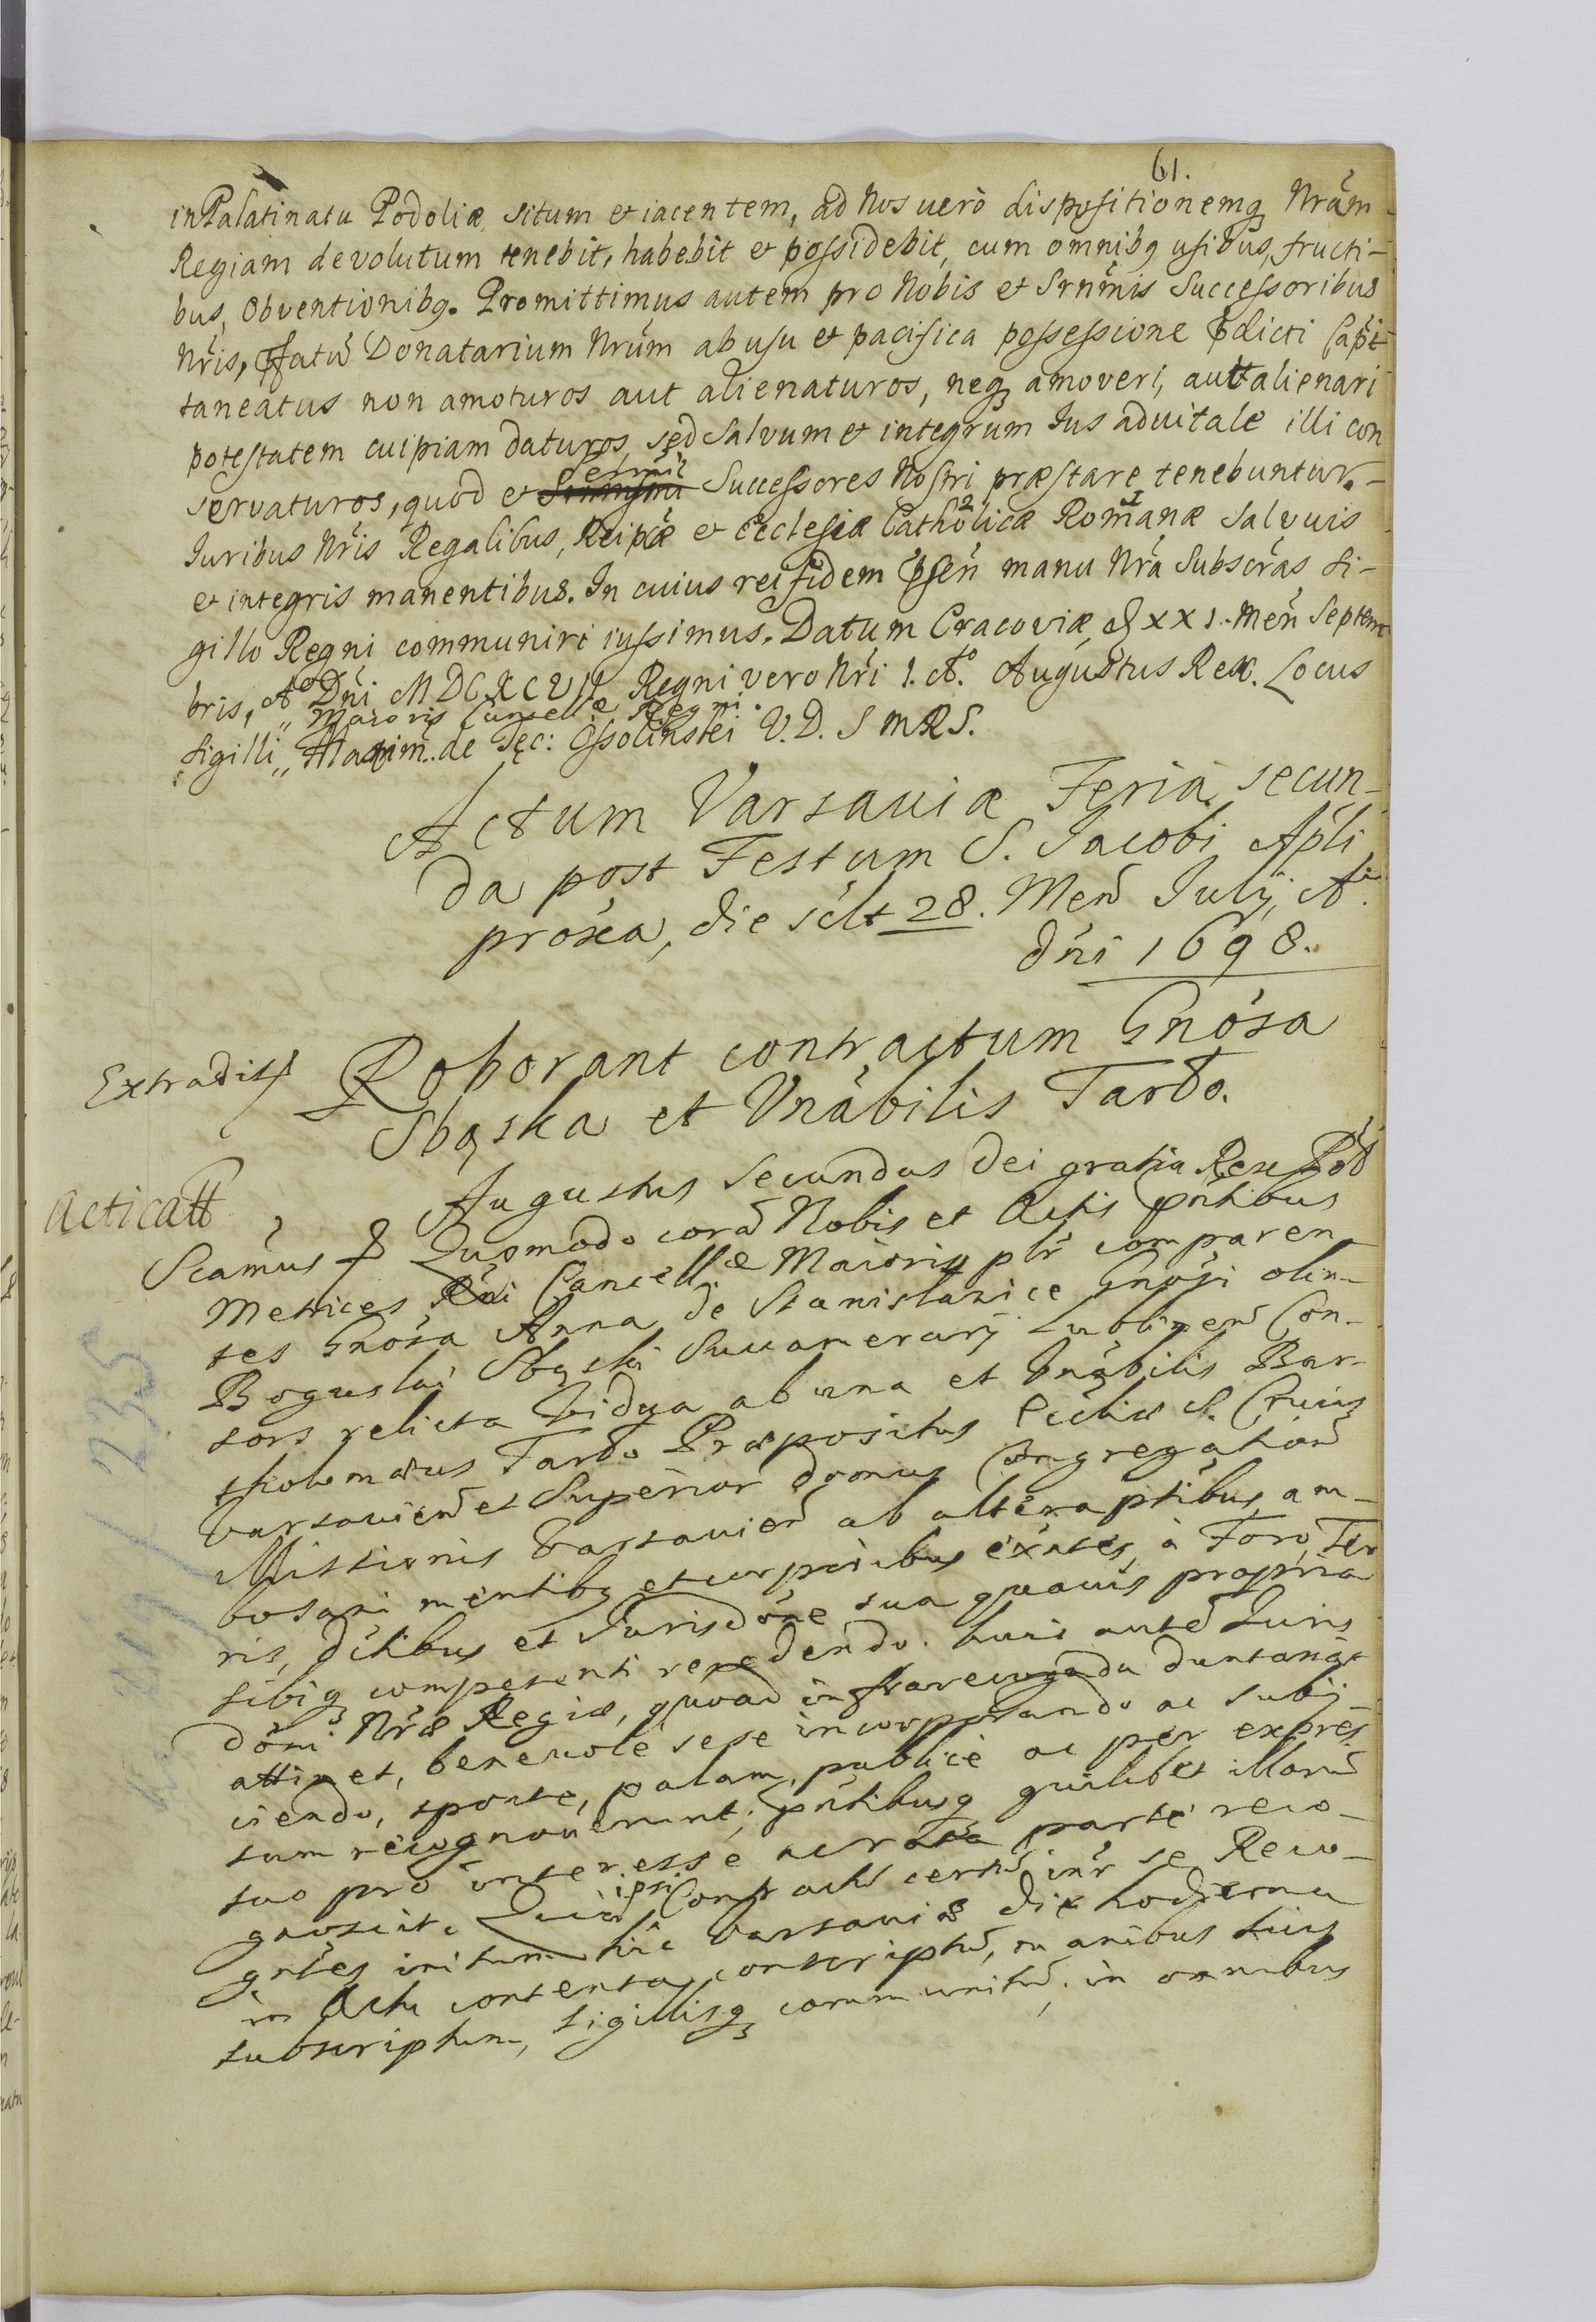 61.
in Palatinatu Podoliæ situm et iacentem, ad Nos uerò dispositionemq Nrãm
Regiam devolutum tenebit, habebit et possidebit, cum omnibq usibus, fructi-
bus, Obventionibq. Promittimus autem pro Nobis et Srnmis Successoribus
Nris, Pfatũ Donatarium Nrũm ab usu et pacifica possessione pdicti Capi-
taneatus non amoturos aut alienaturos, neq amoveri, autt alienari
potestatem cuipiam daturos, sed salvum et integrum Ius aduitale illi con
servaturos, quod et Sermi Successores Nostri præstare tenebuntur.-
Iuribus Nris Regalibus, Reipcæ et Ecclesiæ Catholicæ 2 Romanæ 1 salvuis
et integris manentibus. In cuius rei fidem Psen manu Nra Subscras si-
gillo Regni communiri iussimus. Datum Cracoviæ, d XXI. Men Septem
bris, Ao Dni MDCXCVII Regni vero Nri I. Ao. Augustus Rex. Locus
Sigilli „ Maioris Cancellæ Regni.
„ Maxim. de Tęc: Ossolinskei V.D. S m R S.
Actum Varsauiæ Feria secun-
da post Festum S. Jacobi Apli
proxa, die sclt 28. Men July, Ao
dni 1698.
Extradit
Roborant contractum Gnosa
Sbąska et Vnabilis Tardo.
Acticatt
Augustus Secundus Dei gratia Rex Pol
Scamus & Quomodo corã Nobis et Actis pntibus
Metrices Rni Cancellæ Maioris plr comparen
tes Gnosa Anna de Stanislawice Gnosi olim
Boguslai Sbąski Succamerarij Lublinen Con-
sors relicta Vidua ab una et Vnabilis Bar-
tholomæus Tardo Præpositus Ecclæ S. Crucis
Varsauien et Superior domus Congregation
Missionis Varsauien ab altera ptibus, am-
bo sani mentibq et corporibus exntes, à Foro, Ter
ris, dctibus et Jurisdõne sua quauis propria
sibiq competenti recedendo. huic autẽ Juris
dõni Nræ Regiæ, quoad infrarecogndu duntaxat
attinet, beneuole sese incorporando ac subij-
ciendo, sponte, palam, publicè ac per expres
sum recognouerunt; pntibusq quilibet illorũ
suo pro interesse ac rata parte reco-
gnoscit. Quia ipsi Contractũ certũ intr se Reco-
gntes initum hic Varsauiæ die hodierna
in Actu contenta, conscriptũ, manibus suis
subscriptum, sigillisq communitũ, in omnibus